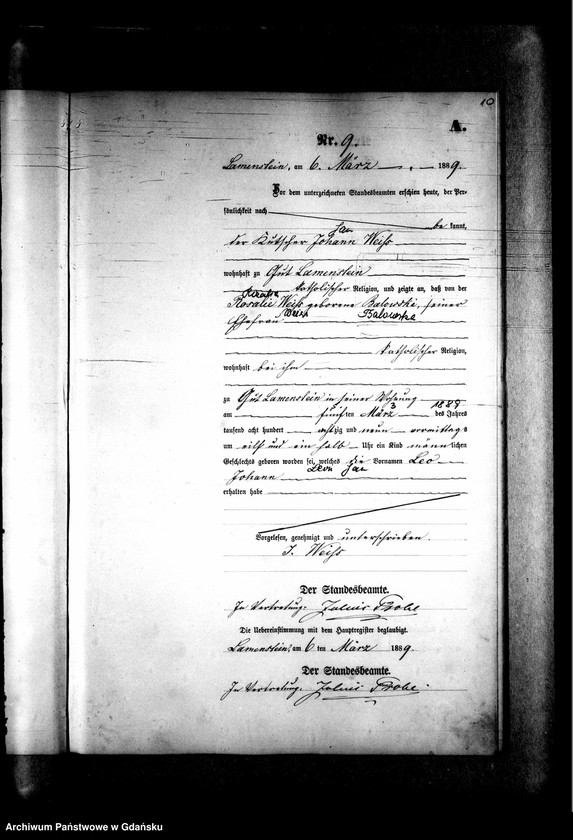 10
A.
Nr. 9.
Lamenstein, am 6. März 1889.
Vor dem unterzeichneten Standesbeamten erschien heute, der Per-
sönlichkeit nach be kannt,
Jan
der Kutscher Johann Weiss
wohnhaft zu Gut Lamenstein
katholischer Religion, und zeigte an, daß von der
Rosalie Weiss geborene Balowski, seiner
Ehefrau Balowska
katholischer Religion,
wohnhaft bei ihm
zu Gut Lamenstein in seiner Wohnung
am fünften März 3 1889 des Jahres
tausend acht hundert achtzig und neun vormittags
um eilf und ein halb Uhr ein Kind männlichen
Geschlechts geboren worden sei, welches die Vornamen Leo
Johann Leon Jan
erhalten habe
Vorgelesen, genehmigt und unterschrieben.
J. Weiss
Der Standesbeamte.
In Vertretung: Julius
Die Uebereinstimmung mit dem Hauptregister beglaubigt.
Lamenstein, am 6 ten März 1889.
Der Standesbeamte.
In Vertretung: Julius
Archiwum Państwowe w Gdańsku